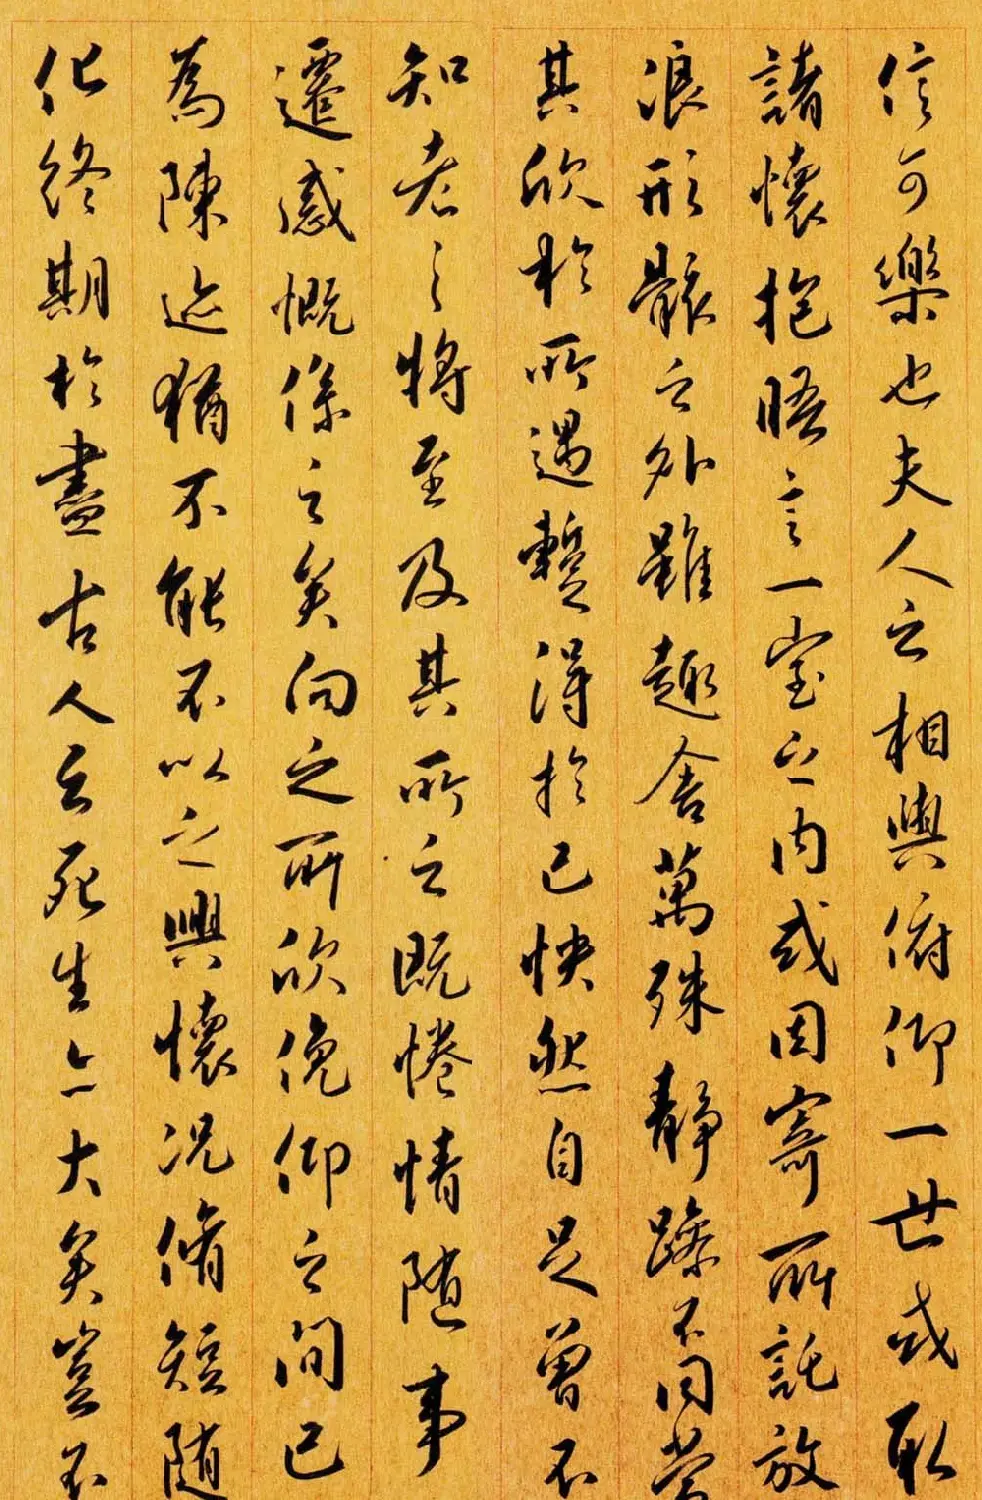 信可樂也夫人之相與俯仰一世或取
諸懷抱晤言一室之內或因寄所託放
浪形骸之外雖趣舍萬殊靜躁不同當
其欣於所遇暫得於己快然自足曾不
知老之將至及其所之既惓情随事
遷感慨係之矣向之所欣俛仰之間已
為陳迹猶不能不以之興懷況脩短随
化終期於盡古人云死生亦大矣豈不